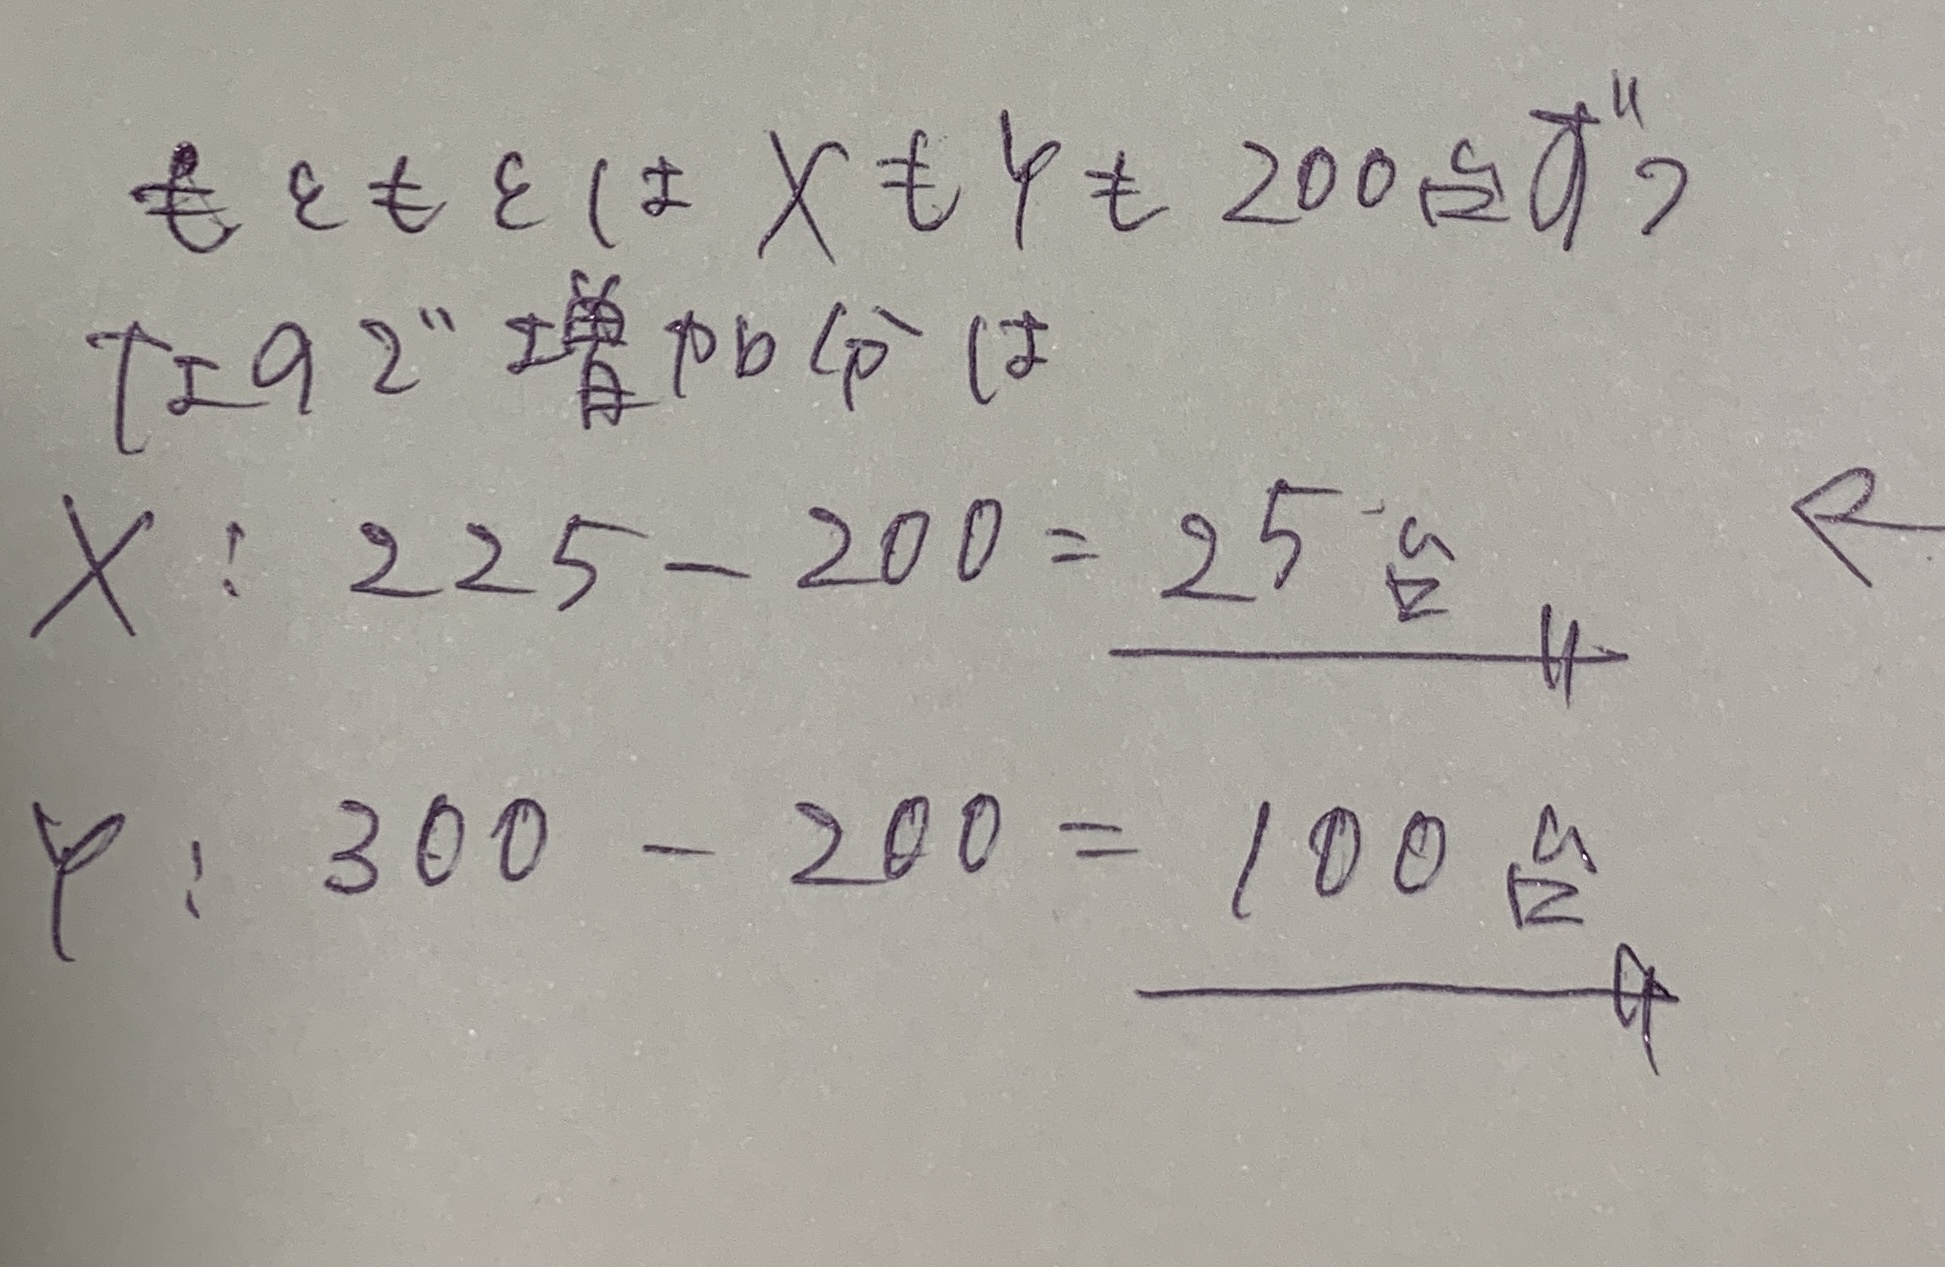 もともとはXもYも200台ずつ
なので増加分は
X: 225-200=25台
Y: 300-200=100台